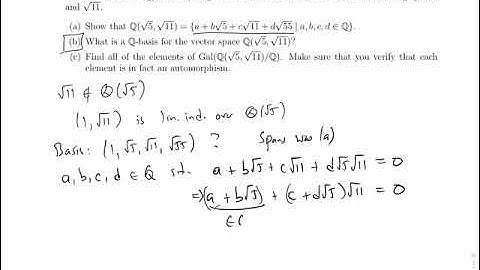 and √11.
(a) Show that ℚ(√5, √11) = {a + b√5 + c√11 + d√55 | a, b, c, d ∈ ℚ}.
(b) What is a ℚ-basis for the vector space ℚ(√5, √11)?
(c) Find all of the elements of Gal(ℚ(√5, √11)/ℚ). Make sure that you verify that each
element is in fact an automorphism.
√11 ∉ ℚ(√5)
(1, √11) is lin. ind. over ℚ(√5)
Basis: (1, √5, √11, √55) ? Span was (a)
a, b, c, d ∈ ℚ s.t. a + b√5 + c√11 + d√5√11 = 0
⇒ (a + b√5) + (c + d√5)√11 = 0
∈ C